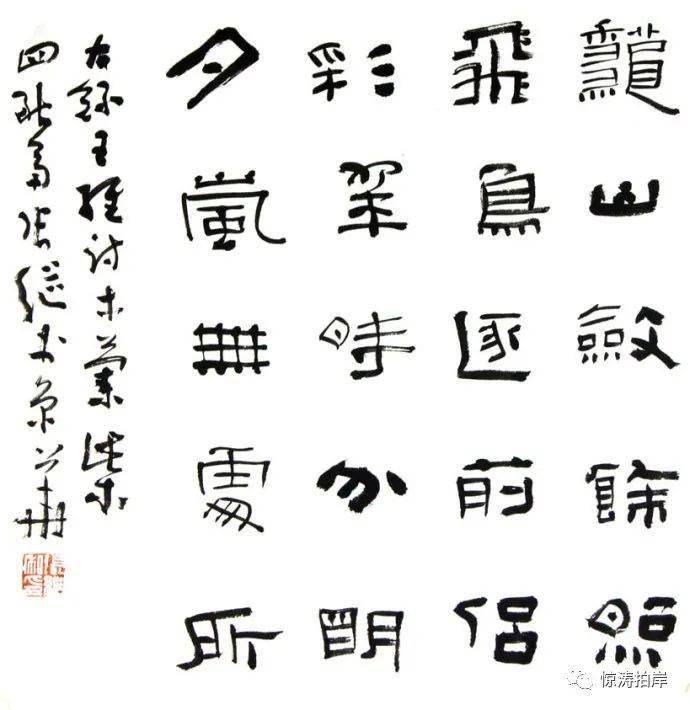 龝山斂餘照
飛鳥逐前侶
彩翠時分明
夕嵐無處所
右錄王維詩木蘭柴
四融齋張繼书京華
惊涛拍岸